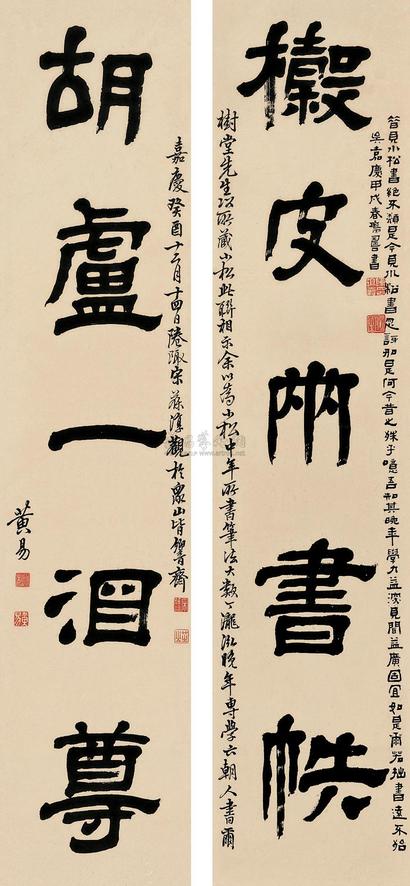 昔見小松書絕不類是今見小松書如是何今昔之殊乎噫吾知其晚年學力益深見聞益廣固宜如是爾若拙書遠不
吳嘉慶甲戌春書
榖皮兩書帙
樹堂先生以所藏小松此聯相示余以為小松中年所書筆法大類丁泓晚年專學六朝人書爾
嘉慶癸酉十二月十四日宋葆淳觀於眾山皆響齋
胡盧一酒尊
黃易